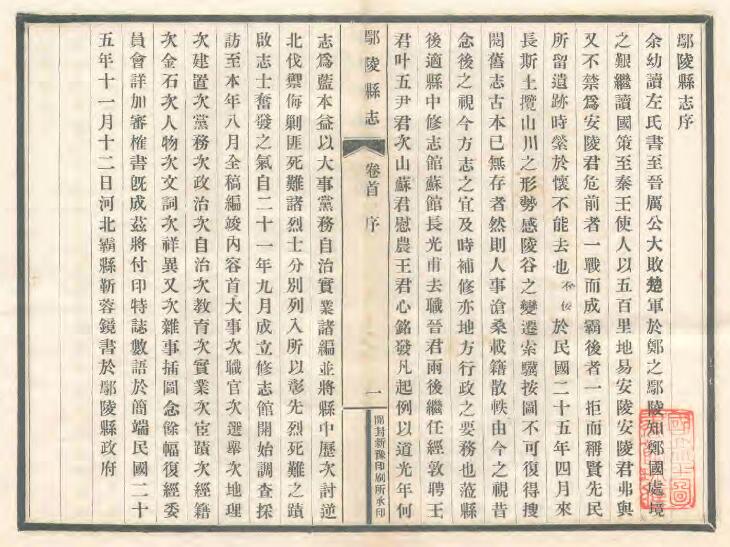 鄢陵縣志序
余幼讀左氏書至晉厲公大敗楚軍於鄭之鄢陵知鄭國處境
之艱繼讀國策至秦王使人以五百里地易安陵安陵君弗與
又不禁爲安陵君危前者一戰而成霸後者一拒而稱賢先民
所留遺跡時縈於懷不能去也不佞於民國二十五年四月來
長斯土攬山川之形勢感陵谷之變遷索驥按圖不可復得搜
閱舊志古本已無存者然則人事滄桑載籍散軼由今之視昔
念後之視今方志之宜及時補修亦地方行政之要務也蒞縣
後適縣中修志館蘇館長光甫去職晉君雨後繼任經敦聘王
君叶五尹君次山蘇君慰農王君心銘發凡起例以道光年何
鄢陵縣志
卷首
序
一
開封新豫印刷所承印
志爲藍本益以大事黨務自治實業諸編並將縣中歷次討逆
北伐禦侮剿匪死難諸烈士分別列入所以彰先烈死難之蹟
啟志士奮發之氣自二十一年九月成立修志館開始調查採
訪至本年八月全稿編竣內容首大事次職官次選舉次地理
次建置次黨務次政治次自治次教育次實業次宦蹟次經籍
次金石次人物次文詞次祥異又次雜事插圖念餘幅復經委
員會詳加審榷書旣成茲將付印特誌數語於簡端民國二十
五年十一月十二日河北霸縣靳蓉鏡書於鄢陵縣政府